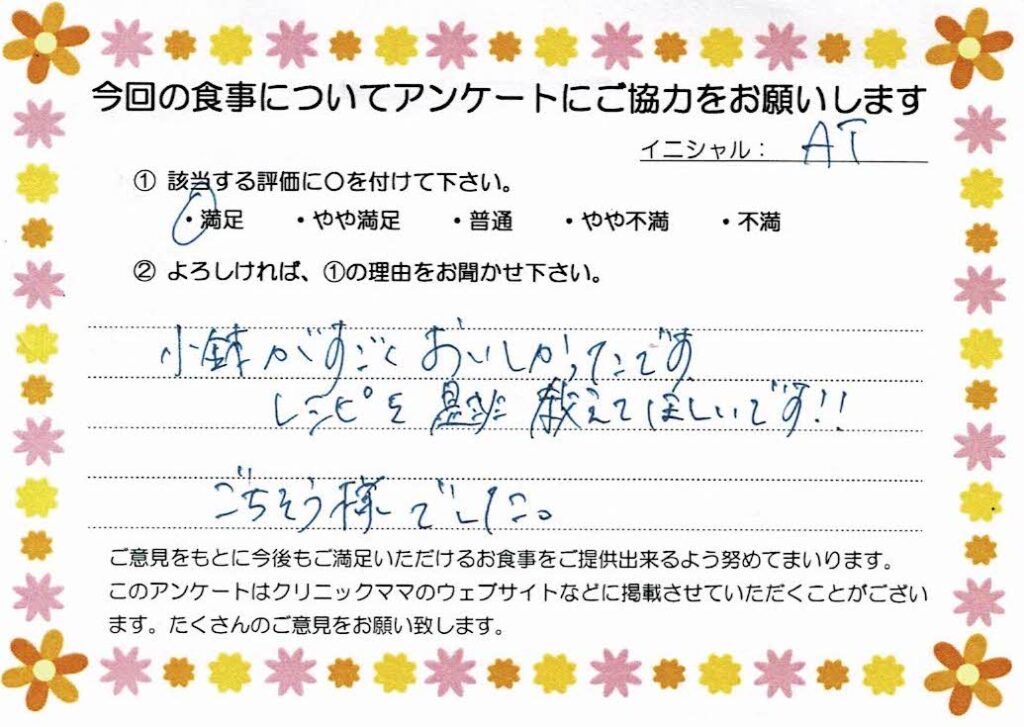 今回の食事についてアンケートにご協力をお願いします
イニシャル： AT
① 該当する評価に〇を付けて下さい。
・満足 ・やや満足 ・普通 ・やや不満 ・不満
② よろしければ、①の理由をお聞かせ下さい。
小鉢がすごくおいしかったです
レシピを是非教えてほしいです!!
ごちそう様でした。
ご意見をもとに今後もご満足いただけるお食事をご提供出来るよう努めてまいります。
このアンケートはクリニックママのウェブサイトなどに掲載させていただくことがござい
ます。たくさんのご意見をお願い致します。